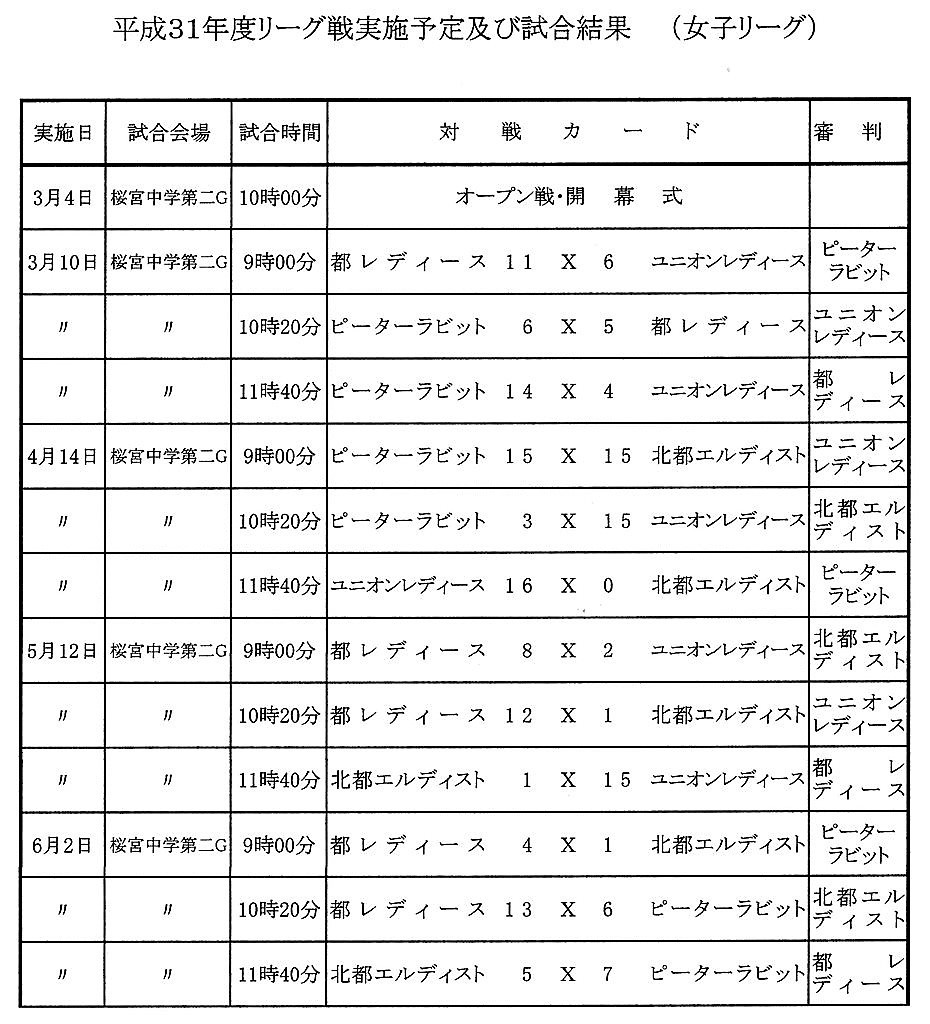 平成31年度リーグ戦実施予定及び試合結果 （女子リーグ）
実施日 試合会場 試合時間 対戦カード 審判
3月4日 桜宮中学第二G 10時00分 オープン戦・開幕式
3月10日 桜宮中学第二G 9時00分 都レディース 11 X 6 ユニオンレディース ピーターラビット
〃 〃 10時20分 ピーターラビット 6 X 5 都レディース ユニオンレディース
〃 〃 11時40分 ピーターラビット 14 X 4 ユニオンレディース 都レディース
4月14日 桜宮中学第二G 9時00分 ピーターラビット 15 X 15 北都エルディスト ユニオンレディース
〃 〃 10時20分 ピーターラビット 3 X 15 ユニオンレディース 北都エルディスト
〃 〃 11時40分 ユニオンレディース 16 X 0 北都エルディスト ピーターラビット
5月12日 桜宮中学第二G 9時00分 都レディース 8 X 2 ユニオンレディース 北都エルディスト
〃 〃 10時20分 都レディース 12 X 1 北都エルディスト ユニオンレディース
〃 〃 11時40分 北都エルディスト 1 X 15 ユニオンレディース 都レディース
6月2日 桜宮中学第二G 9時00分 都レディース 4 X 1 北都エルディスト ピーターラビット
〃 〃 10時20分 都レディース 13 X 6 ピーターラビット 北都エルディスト
〃 〃 11時40分 北都エルディスト 5 X 7 ピーターラビット 都レディース